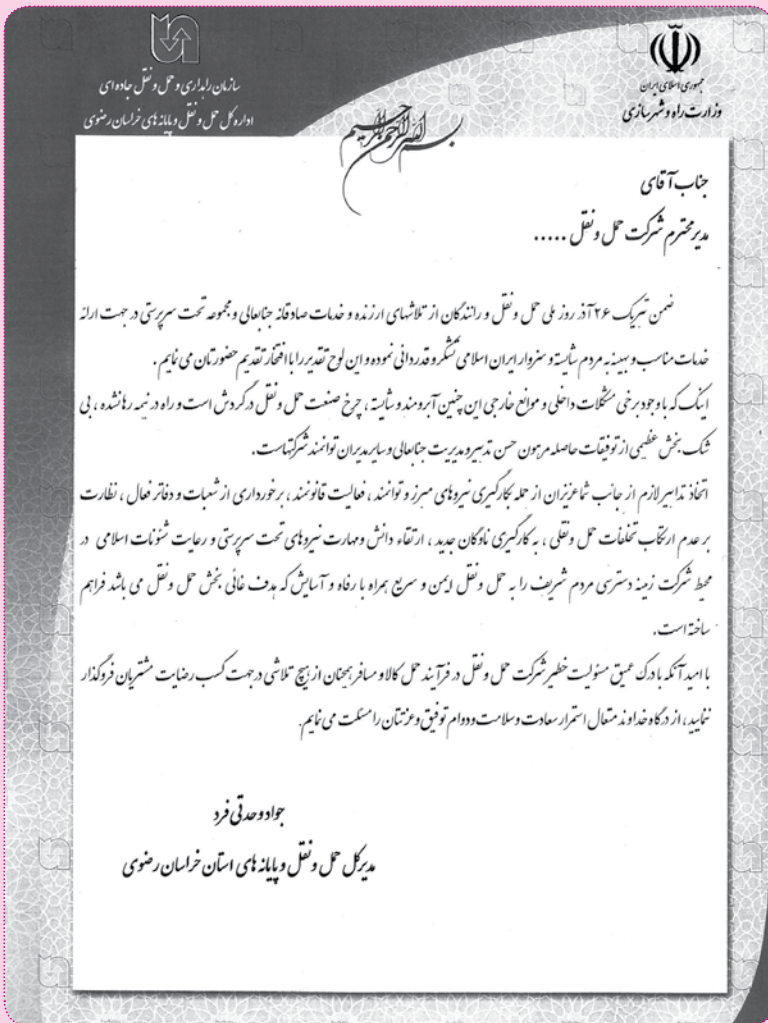 جمهوری اسلامی ایران
وزارت راه و شهرسازی
سازمان راهداری و حمل و نقل جاده ای
اداره کل حمل و نقل و پایانه های خراسان رضوی
بسم الله الرحمن الرحیم
جناب آقای
مدیر محترم شرکت حمل و نقل .....
ضمن تبریک ۲۶ آذر روز ملی حمل و نقل و رانندگان از تلاشهای ارزنده و خدمات صادقانه جنابعالی و مجموعه تحت سرپرستی در جهت ارائه
خدمات مناسب و بهینه به مردم شایسته و سزوار ایران اسلامی تشکر و قدردانی نموده و این لوح تقدیر را با افتخار تقدیم حضورتان می نمایم .
اینک که با وجود برخی مشکلات داخلی و موانع خارجی این چنین آبرومند و شایسته ، چرخ صنعت حمل و نقل در گردش است و راه در نیمه رها نشده ، بی
شک بخش عظیمی از توفیقات حاصله مرهون حسن تدبیر و مدیریت جنابعالی و سایر مدیران توانمند شرکتهاست.
اتخاذ تدابیر لازم از جانب شما عزیزان از جمله بکارگیری نیروهای مبرز و توانمند ، فعالیت قانونمند ، برخورداری از شعبات و دفاتر فعال ، نظارت
بر عدم ارتکاب تخلفات حمل و نقلی ، به کارگیری ناوگان جدید ، ارتقاء دانش و مهارت نیروهای تحت سرپرستی و رعایت شئونات اسلامی در
محیط شرکت زمینه دسترسی مردم شریف را به حمل و نقل ایمن و سریع همراه با رفاه و آسایش که هدف غائی بخش حمل و نقل می باشد فراهم
ساخته است.
با امید آنکه با درک عمیق مسئولیت خطیر شرکت حمل و نقل در فرآیند حمل کالا و مسافر همچنان از هیچ تلاشی در جهت کسب رضایت مشتریان فروگذار
ننمایید ، از درگاه خداوند متعال استمرار سعادت و سلامت و دوام توفیق و عزتتان را مسئلت می نمایم.
جواد وحدتی فرد
مدیرکل حمل و نقل و پایانه های استان خراسان رضوی